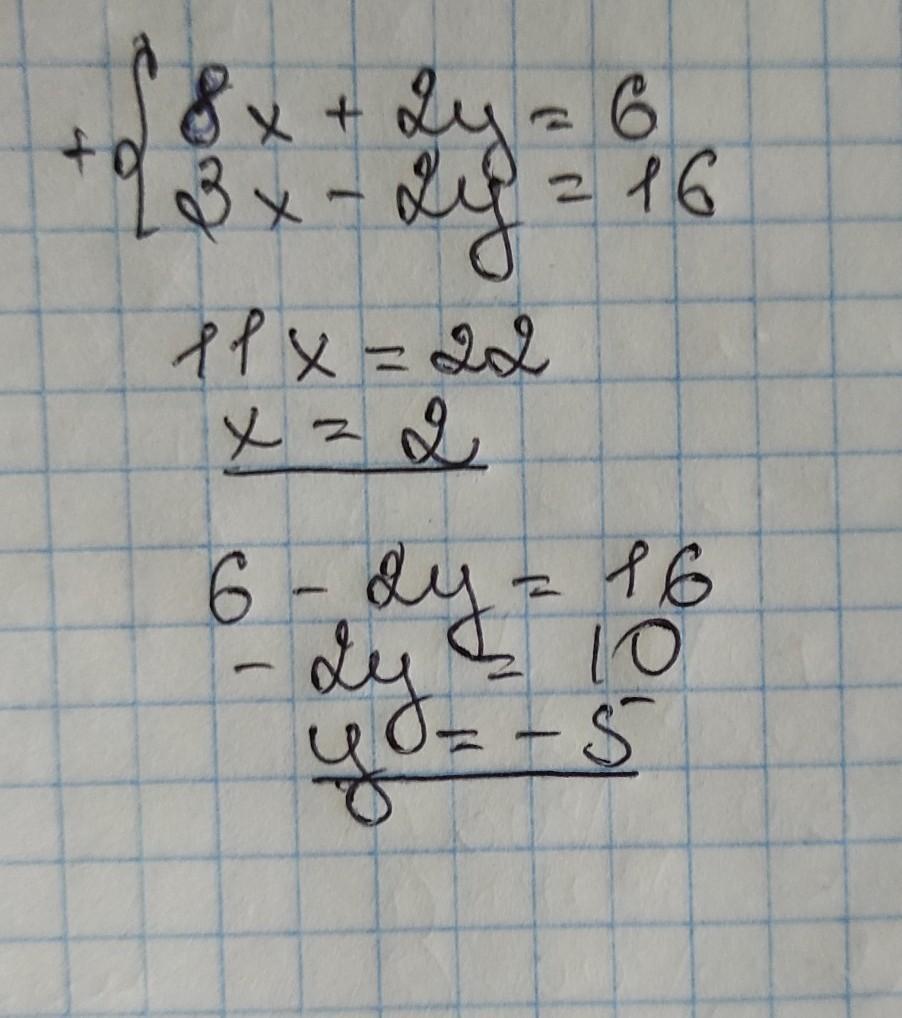 + { 8x + 2y = 6
3x - 2y = 16
11x = 22
x = 2
6 - 2y = 16
- 2y = 10
y = - 5